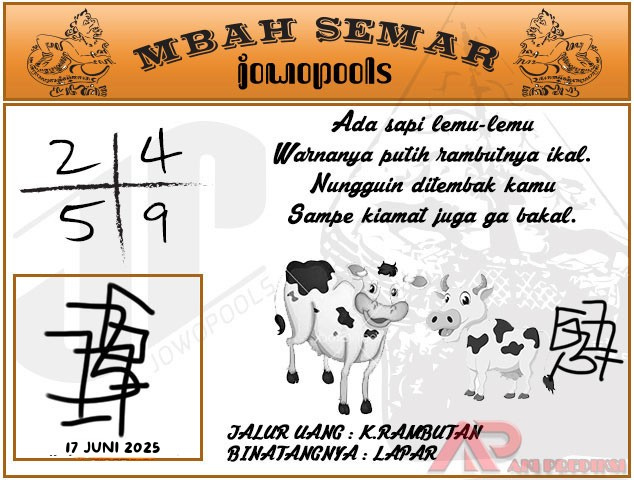 MBAH SEMAR
jowopools
Ada sapi lemu-lemu
Warnanya putih rambutnya ikal.
Nungguin ditembak kamu
Sampe kiamat juga ga bakal.
2 4
5 9
JOWOPOOLS
17 JUNI 2025
JALUR UANG : K.RAMBUTAN
BINATANGNYA : LAPAR
AP AKI PREDIKSI